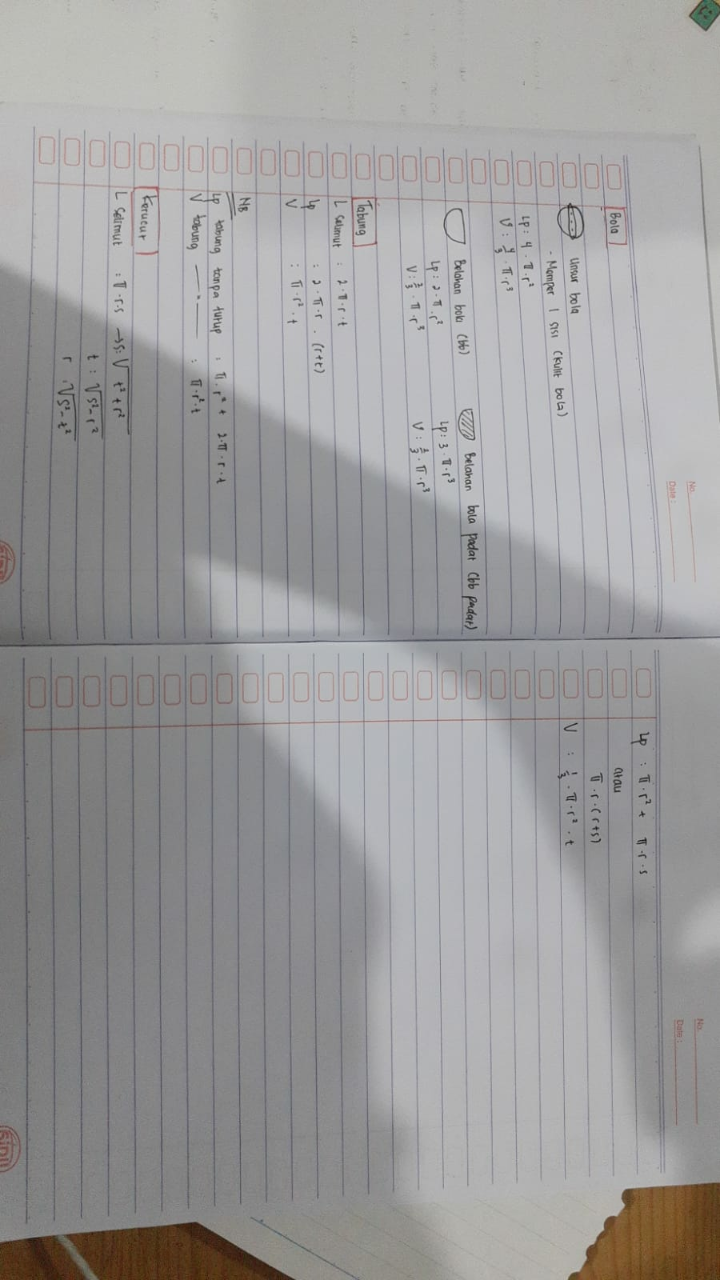 No.
Date :
Bola
Unsur bola
- Memper 1 sisi (kulit bola)
Lp : 4 . π . r²
V : 4/3 . π . r³
Belahan bola (bb)
Lp : 2 . π . r²
V : 2/3 . π . r³
Belahan bola padat (bb padat)
Lp : 3 . π . r³
V : 2/3 . π . r³
Tabung
L selimut : 2 . π . r . t
Lp : 2 . π . r . (r + t)
V : π . r² . t
NB
Lp tabung tanpa tutup : π . r² + 2 . π . r . t
V tabung —— " —— : π . r² . t
Kerucut
L selimut : π . r . s → s : √t² + r²
t : √s² - r²
r : √s² - t²
No.
Date :
Lp : π . r² + π . r . s
atau
π . r . (r + s)
V : 1/3 . π . r² . t